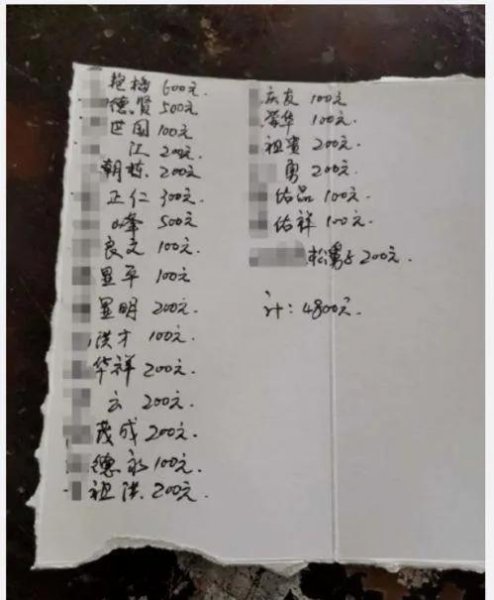 抱梅 600元.
德贤 500元
世国 100元
江 200元.
朝栋. 200元
正仁 300元
峰 500元
良文 100元.
显平 100元
显明 200元.
洪才 100元.
华祥 200元.
云 200元.
茂成 200元.
德永 100元.
祖洪. 200元.
庆友 100元
荣华 100元.
祖贵 200元.
勇 200元.
佑品 100元.
佑祥 100元.
松 200元.
计: 4800元.